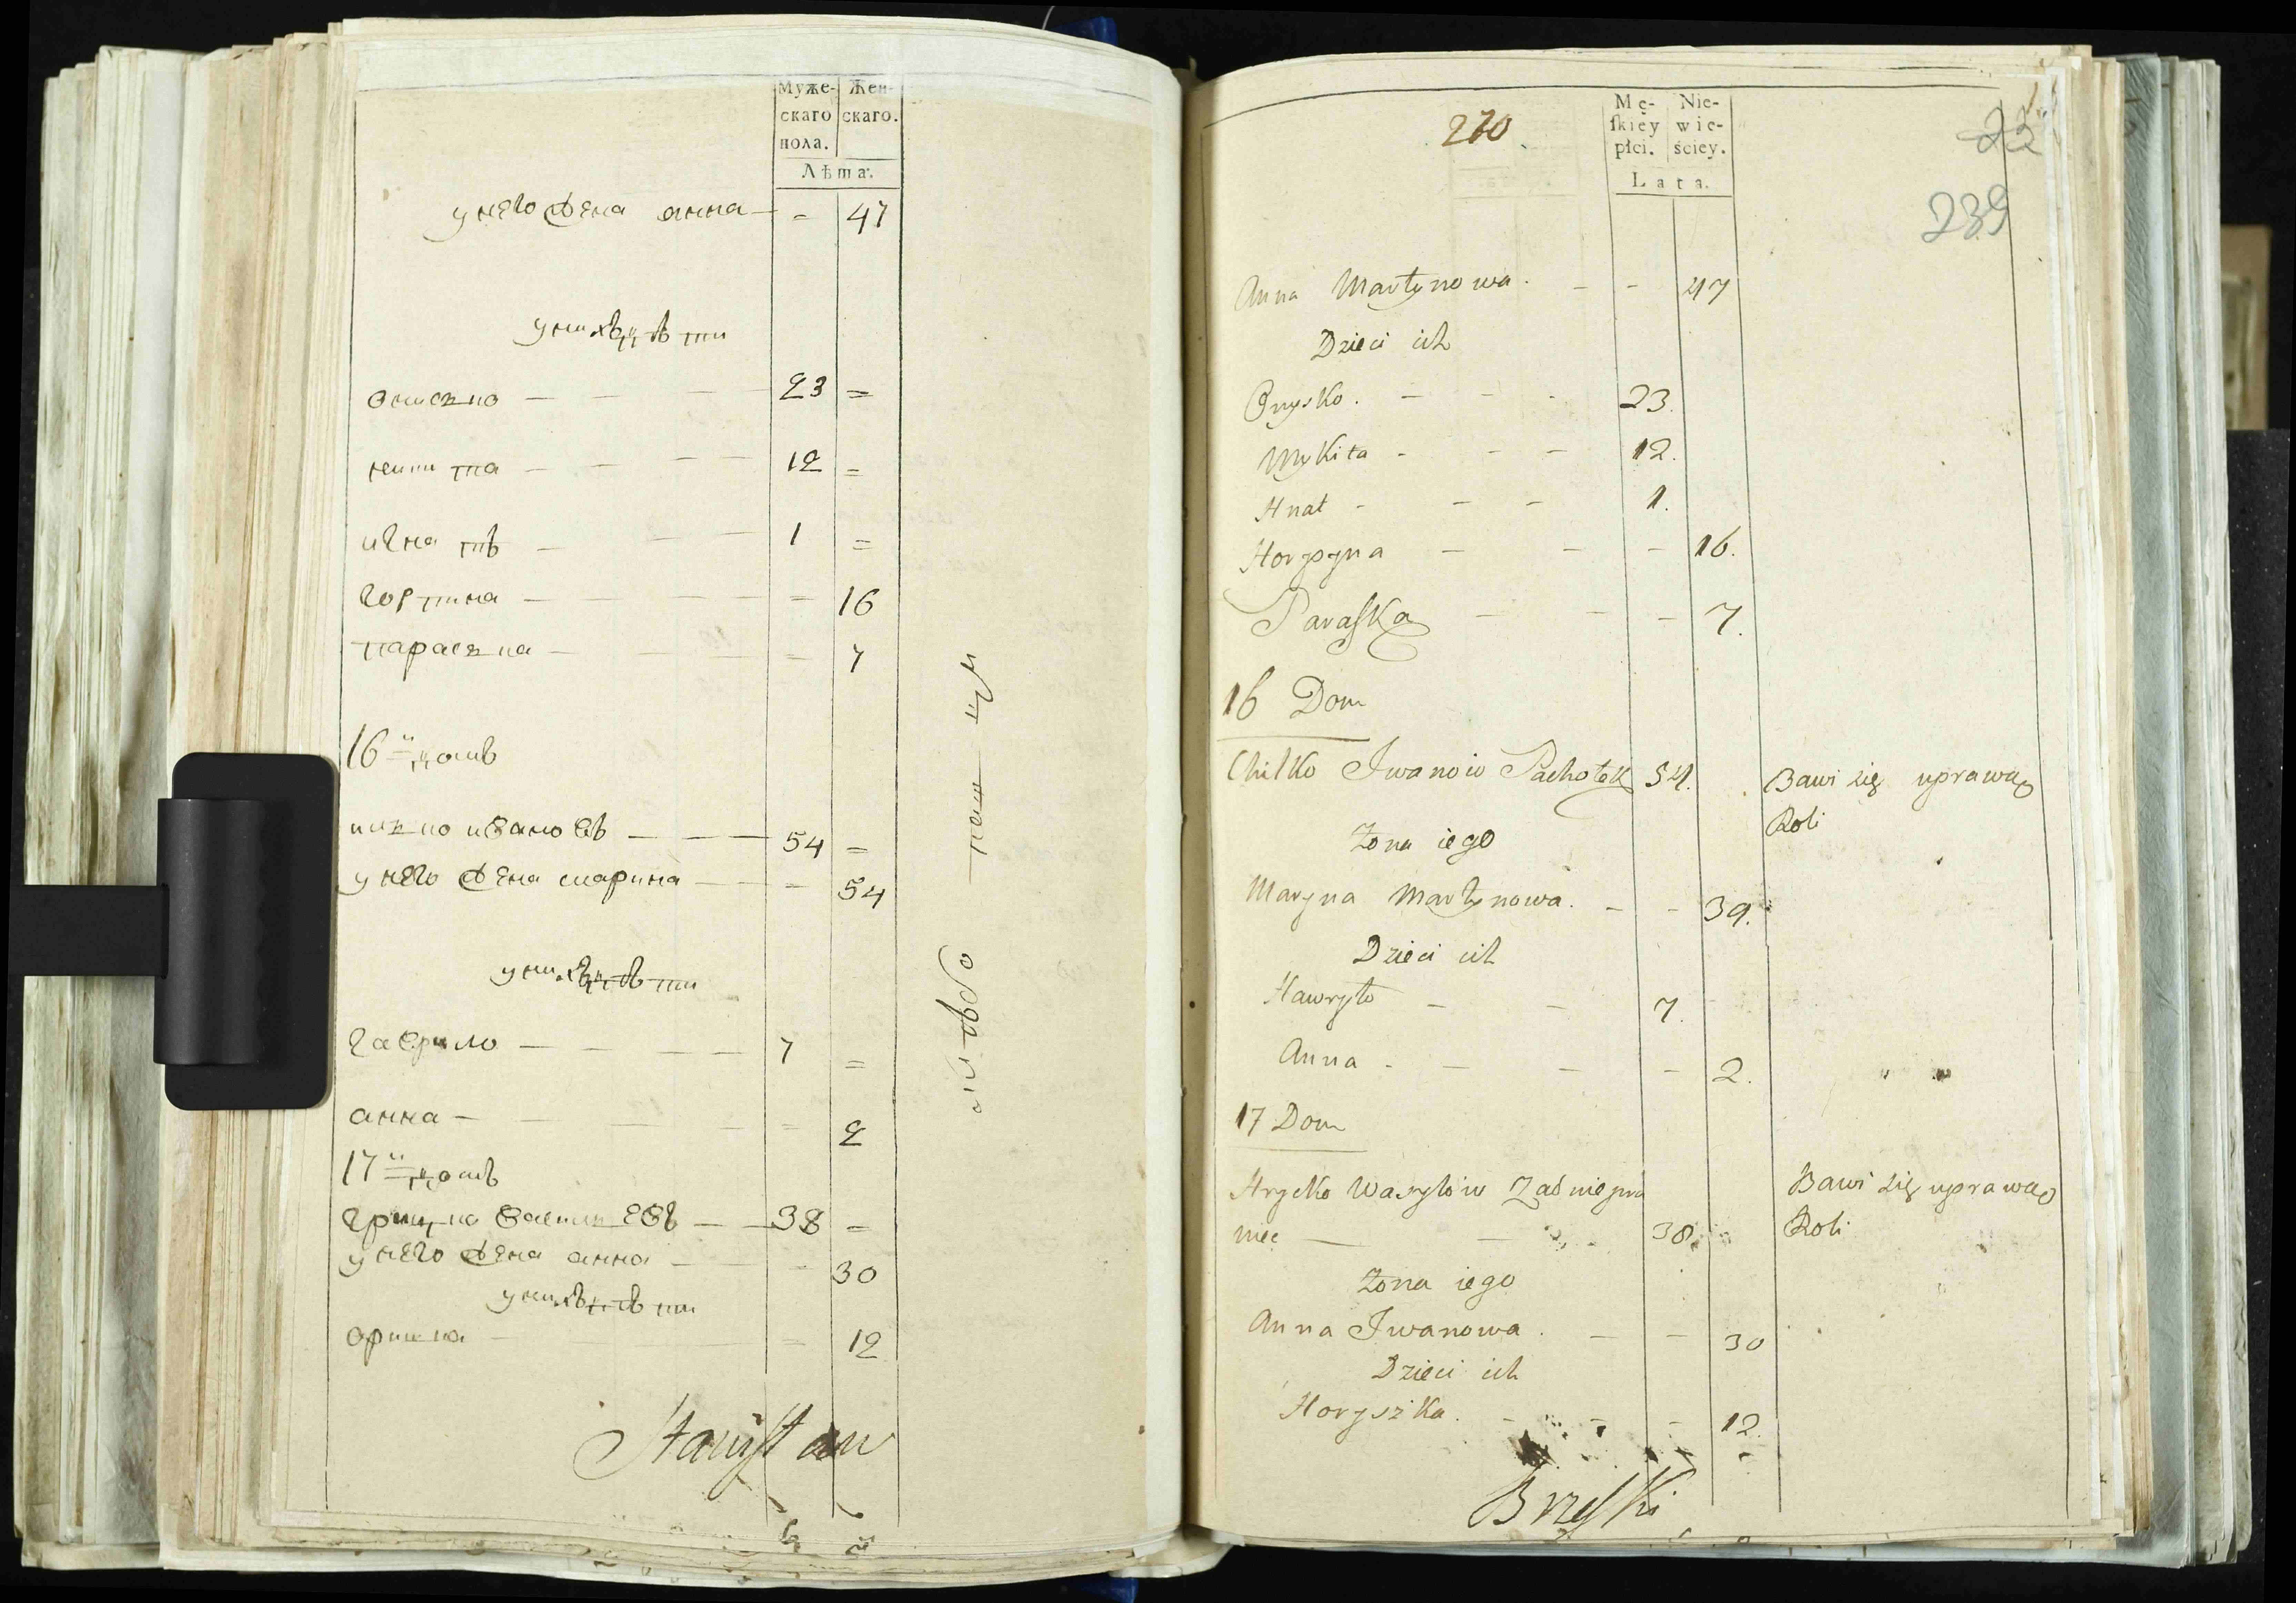 Муже-
скаго
пола.
Жен-
скаго.
Лѣта.
у него жена анна — = 47
у нихъ дѣти
ониско — — — — 23 =
никита — — — — 12 =
игнатъ — — — 1 =
гортина — — — — = 16
параска — — — — 7
16й домъ
ицко ивановъ — — — 54 =
у него жена марина — — = 54
у нихъ дѣти
гаврило — — — — 7 =
анна — — — — = 2
17й домъ
грицко василевъ — — 38 =
у него жена анна — = 30
у нихъ дѣти
оришка — = 12
Stanisław
270
Mę-
skiey
płci.
Nie-
wie-
ściey.
Lata.
239
Anna Martynowa. — — 47
Dzieci ich
Onysko. — — — 23.
Mykita — — — 12.
Hnat — — — 1.
Horpyna — — — 16.
Paraska — — — 7.
16 Dom
Chilko Iwanow Pachołek 54. Bawi się uprawą
Roli
Żona iego
Maryna Martynowa. — — 39.
Dzieci ich
Hawryło — — 7.
Anna — — — — 2.
17 Dom
Hrycko Wasylów Zadniepra Bawi się uprawą
niec — — 38. Roli
Żona iego
Anna Iwanowa. — — 30
Dzieci ich
Horyszka. — — — 12.
Brzeski